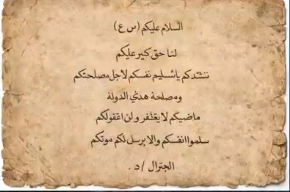 السلام عليكم (س ع)
لنا حق كبير عليكم
ننشدكم بتسليم نفسكم لاجل مصلحتكم
ومصلحة هذي الدولة
ماضيكم لا يغتفر ولن اقولكم
سلموا انفسكم والا يرسل لكم موتكم
الجنرال / د .